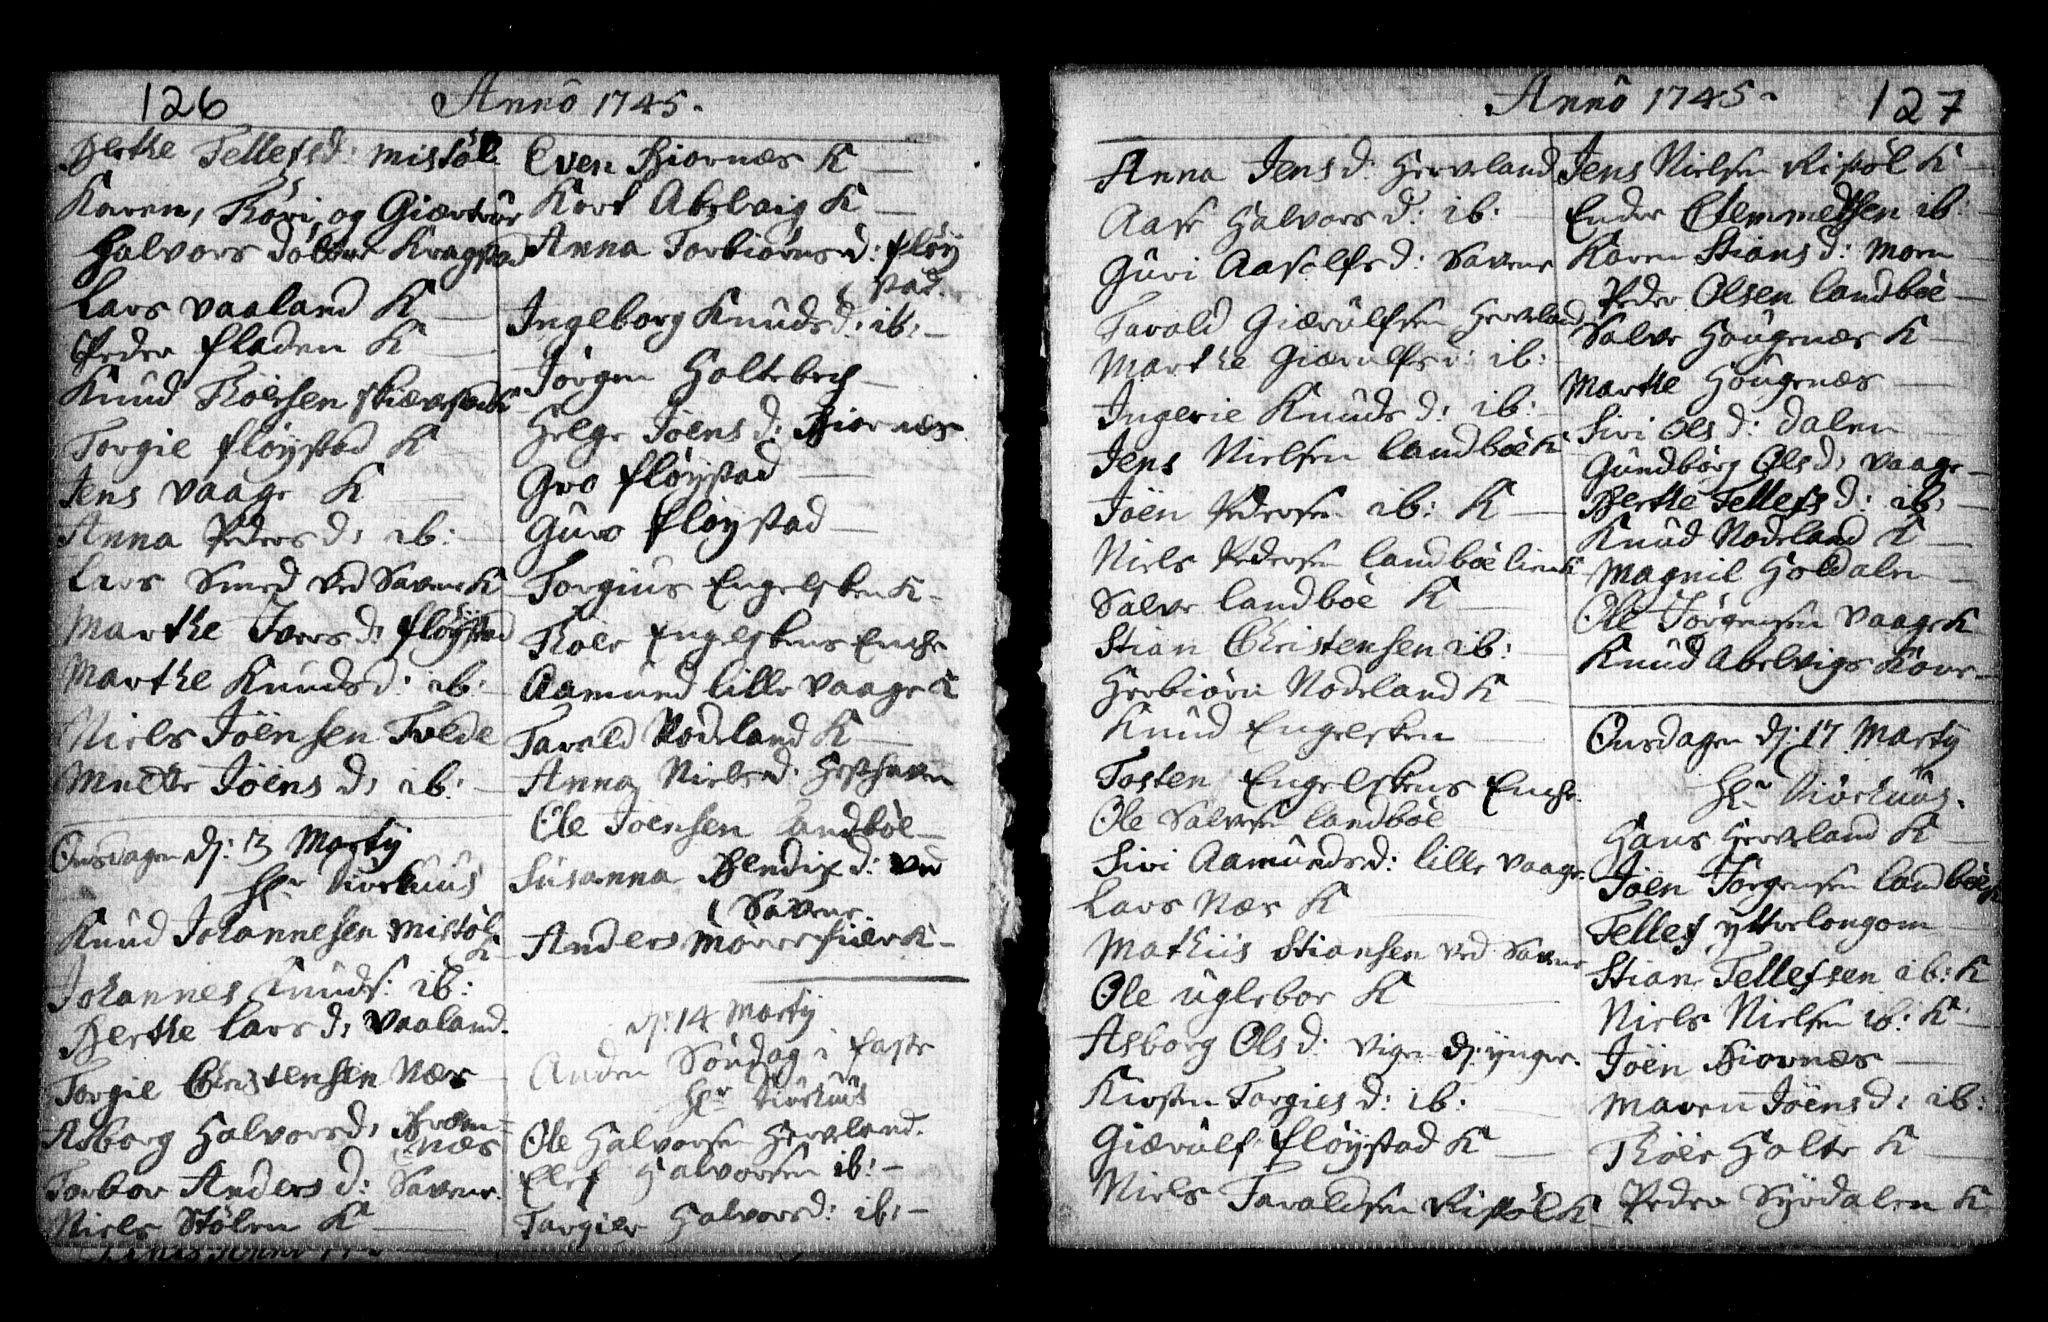 126
Anno 1745.
Berthe Tellefsd: Mistøl
Karen, Thori, og Giertrue
Halvors døttre Kragstad
Lars Vaaland K
Peder Fladen K
Knud Thoersen Skiævestad K
Torgie Fløystad K
Jens Vaage K
Anna Pedersd: ib:
Lars Smed ved Savene K
Marthe Iversd: Fløystad
Marthe Knudsd: ib:
Niels Jöensen Tvede
Mette Jöensd: ib:
Onsdagen d: 3 Marty
Hr
Knud Johannesen Mistøl
K
Johannes Knuds: ib:
Berthe Larsd: Vaaland.
Torgie Christensen Næs
Asborg Halvorsd:
næs
Torbor Andersd: Savene.
Niels Stølen K
Even Biornæs K
Kort Abelvig K
Anna Torbiørnsd: Fløy
stad.
Ingeborg Knudsd: ib:
Jørgen Holtebech
Helge Jöensd: Biornæs
Gro Fløystad
Guro Fløystad
Torgius Engelsken K
Thoer Engelskens Enche
Aamund lille Vaage K
Tarald Rodeland K
Anna Nielsd: Hesthaven
Ole Joensen Landböe
Susanna Bendixd: ved
Savene.
Anders Mörrefiær K
d: 14 Marty
Anden Søndag i Faste
Hr
Ole Halvorsen Herreland.
Elef Halvorsen ib:
Torgier Halvorsd: ib:
Anno 1745.
127
Anna Jensd: Herreland
Aase Halvorsd: ib:
Guri Aasolfsd: Savene
Tarald Giærulfsen Herreland
Marthe Giærulfsd: ib:
Ingerie Knudsd: ib:
Jens Nielsen Landböe K
Jöen Pedersen ib: K
Niels Pedersen Landböe lien K
Salve Landböe K
Stian Christensen ib:
Herbiörn Rodeland K
Knud Engelsken
Tosten Engelskens Enche.
Ole Salvesen Landböe
Siri Aamundsd: lille Vaage.
Lars Næs K
Mathiis Stiansen ved Savene
Ole Uglebor K
Asborg Olsd: Vigen d: ynger.
Kirsten Torgiesd: ib:
Giærulf Fløystad K
Niels Taraldsen Ristøl K
Jens Nielsen Ristøl K
Ender Clemmetsen ib:
Karen Stiansd: Moen
Peder Olsen Landböe
Salve Hougenæs K
Marthe Hougenæs
Siri Olsd: Dalen
Gundborg Olsd: Vaage
Berthe Tellefsd: ib:
Knud Rodeland K
Magnil Holdalen
Ole Jørgensen Vaage K
Knud Abelvigs Kone
Onsdagen d: 17 Marty
Hr
Hans Herreland K
Jöen Jørgensen Landböe K
Tellef Ytterlongom
Stian Tellefsen ib: K
Niels Nielsen ib: K
Jöen Biornæs
Maren Jöensd: ib:
Thoer Holte K
Peder Syrdalen K